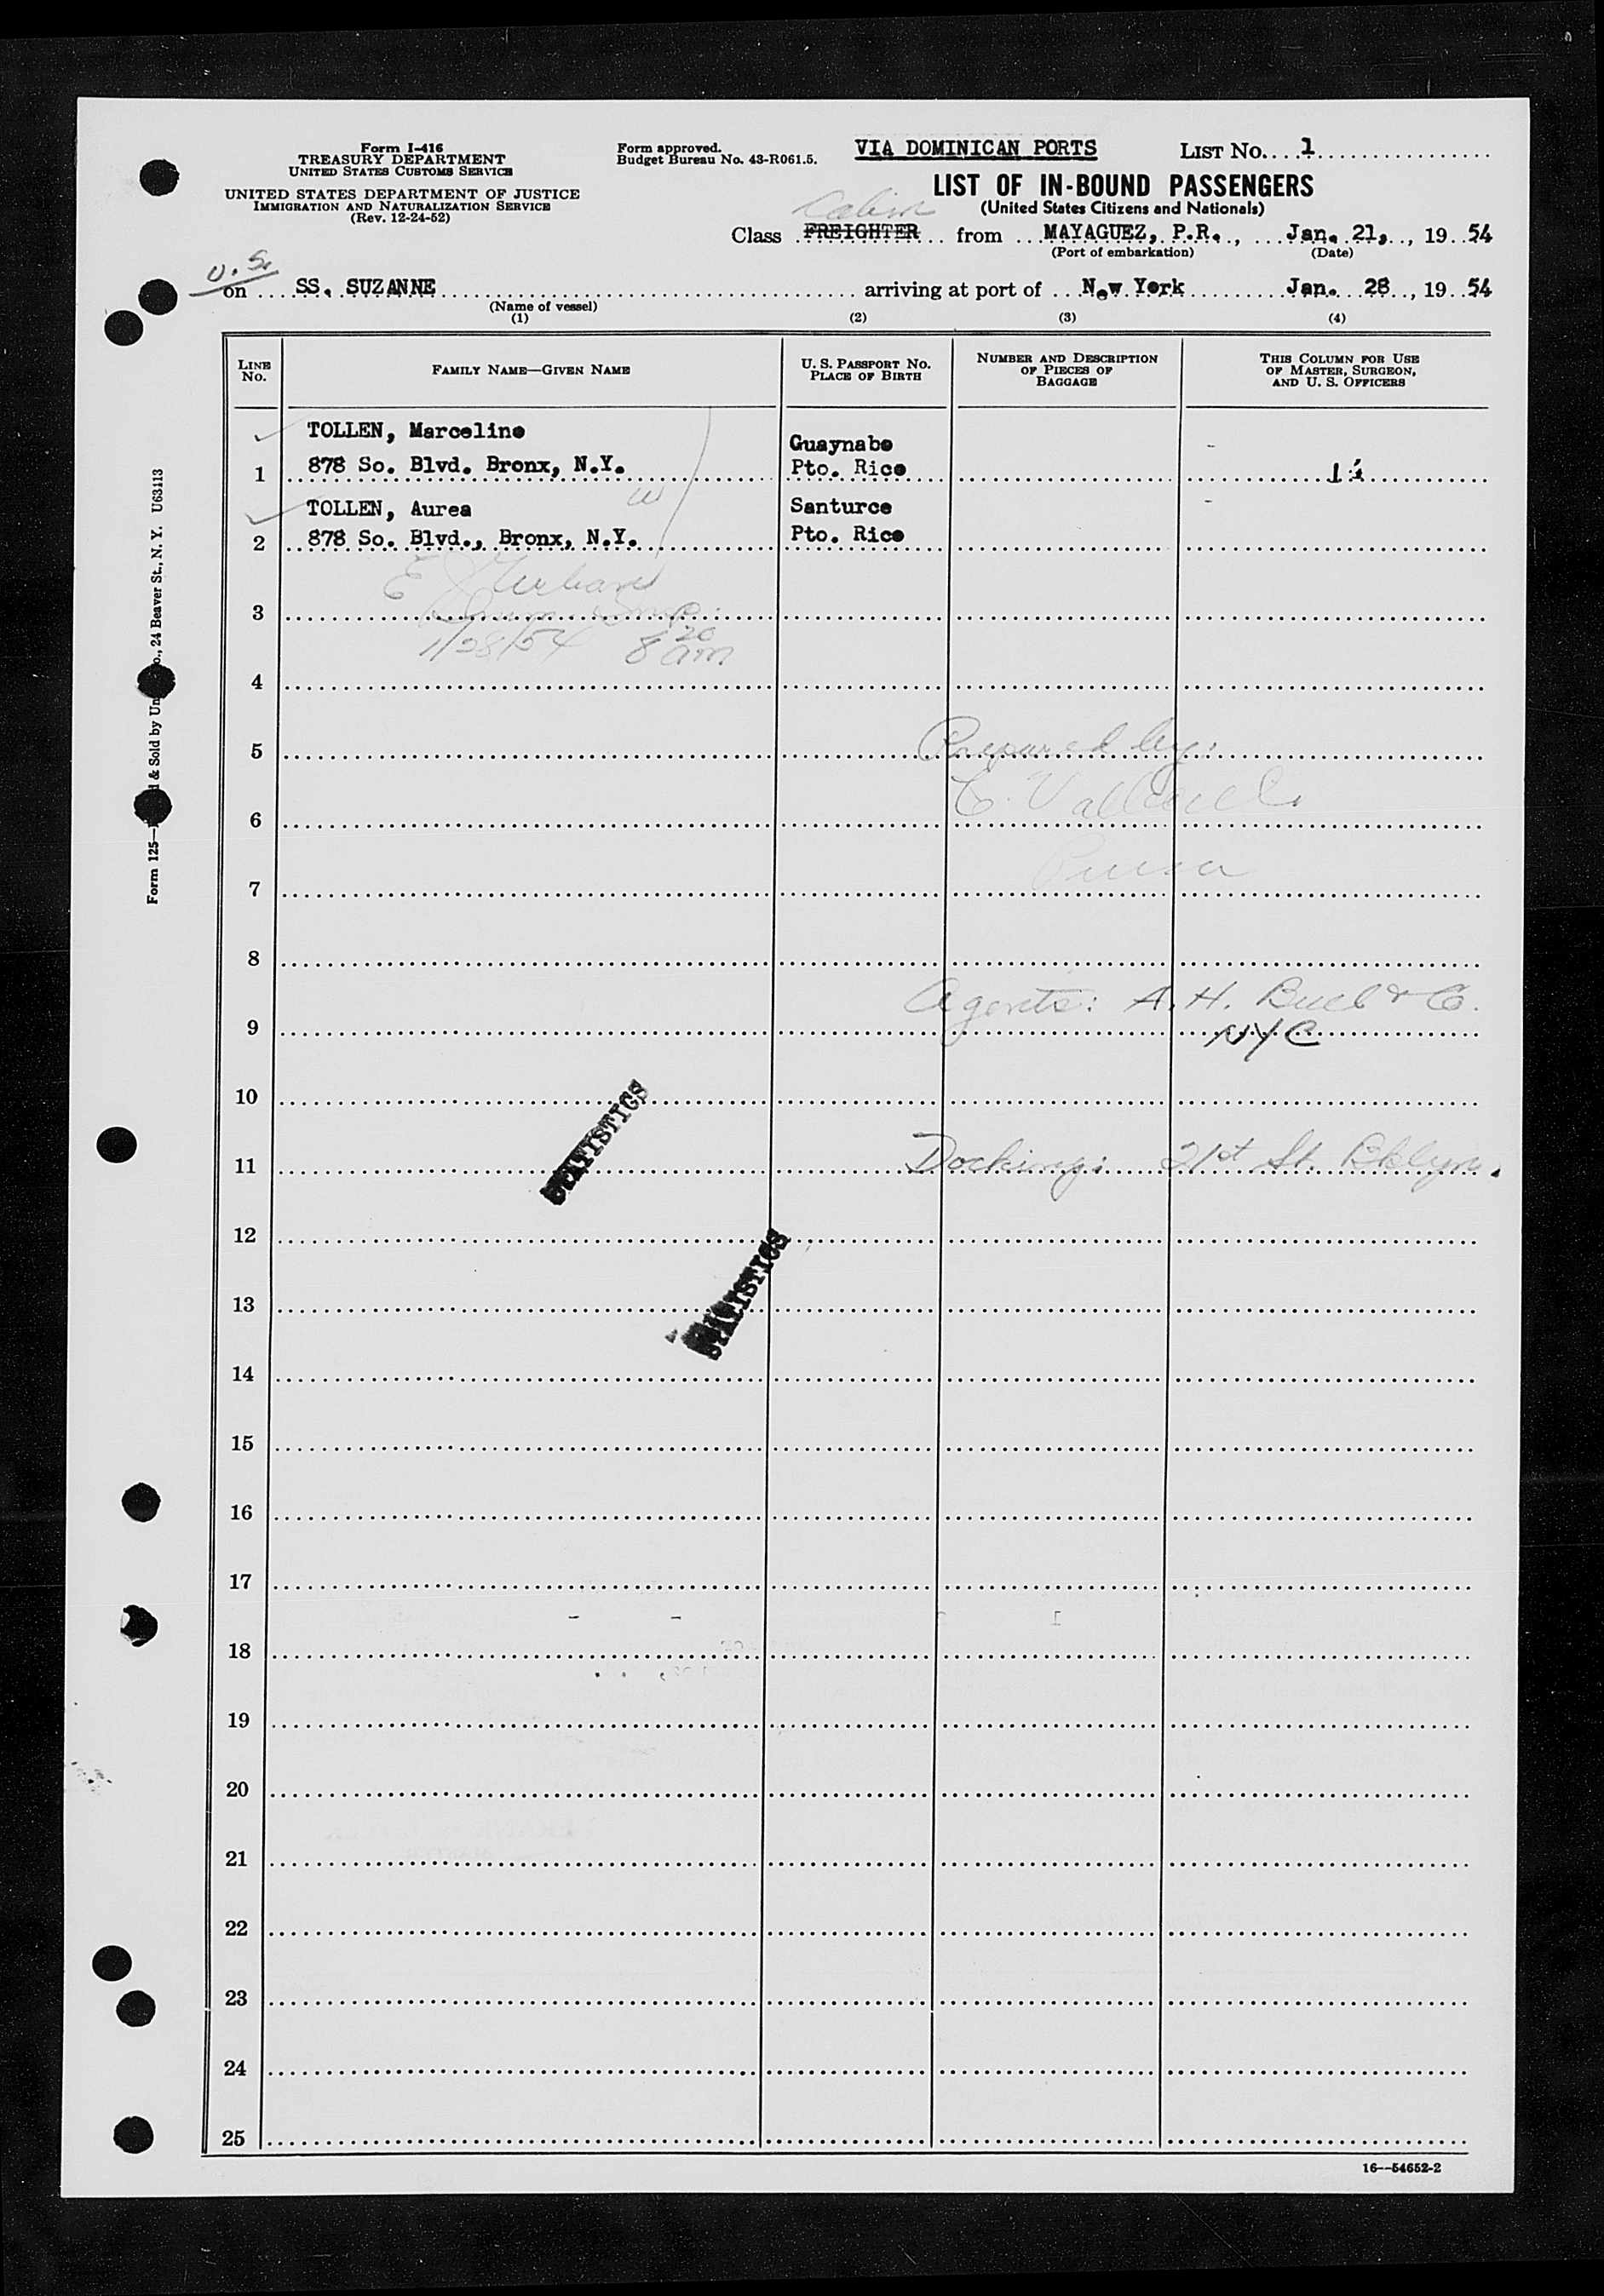 Form I-416
TREASURY DEPARTMENT
UNITED STATES CUSTOMS SERVICE
UNITED STATES DEPARTMENT OF JUSTICE
IMMIGRATION AND NATURALIZATION SERVICE
(Rev. 12-24-52)
Form approved.
Budget Bureau No. 43-R061.5.
VIA DOMINICAN PORTS
LIST No. 1
LIST OF IN-BOUND PASSENGERS
(United States Citizens and Nationals)
Cabin
Class FREIGHTER from MAYAGUEZ, P.R., Jan. 21, , 19 54
(Port of embarkation) (Date)
U.S.
on SS. SUZANNE arriving at port of New York Jan. 28 , 19 54
(Name of vessel)
(1) (2) (3) (4)
LINE No.
FAMILY NAME—GIVEN NAME
U. S. PASSPORT No.
PLACE OF BIRTH
NUMBER AND DESCRIPTION
OF PIECES OF
BAGGAGE
THIS COLUMN FOR USE
OF MASTER, SURGEON,
AND U. S. OFFICERS
TOLLEN, Marceline Guaynabo
1 878 So. Blvd. Bronx, N.Y. Pto. Rico
TOLLEN, Aurea Santurce
W
2 878 So. Blvd., Bronx, N.Y. Pto. Rico
3
1/28/54 8 20 am
4
5 Prepared by:
6
7
8
Agents: A. H. Bull & Co.
9 NYC
10
STATISTICS
11 Docking: 21st St. Bklyn.
12
STATISTICS
13
14
15
16
17
18
19
20
21
22
23
24
25
16—54652-2
Form 125— & Sold by 24 Beaver St., N. Y. U63113